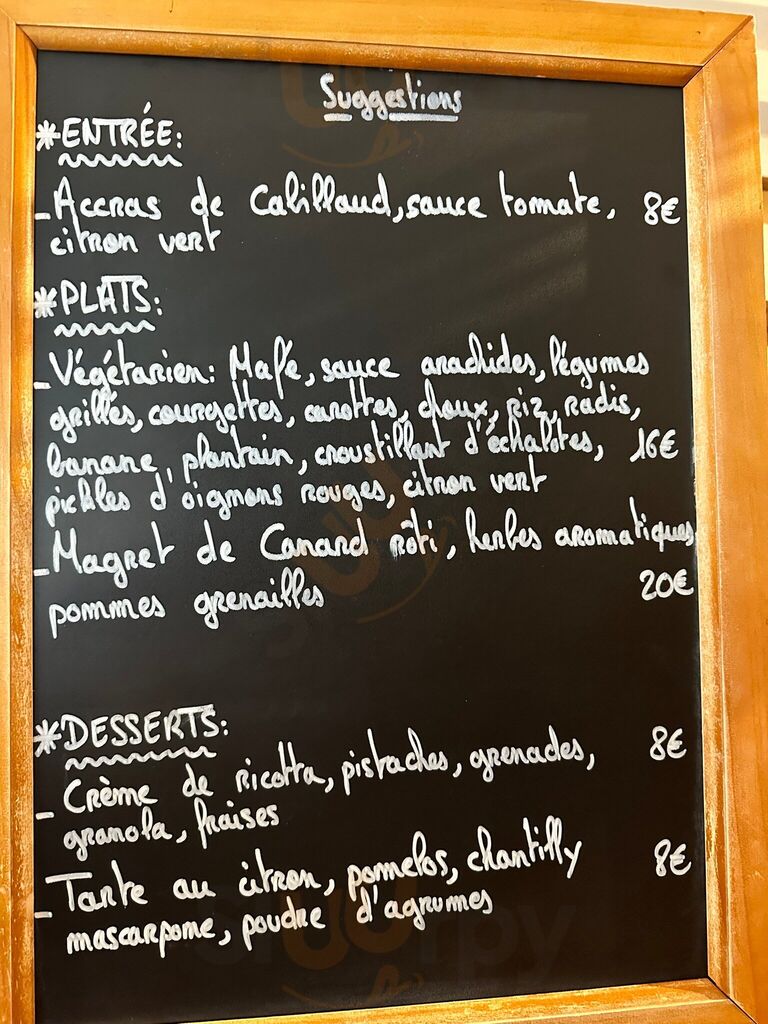 Suggestions
*ENTRÉE:
-Accras de Cabillaud, sauce tomate, 8€
citron vert
*PLATS:
-Végétarien: Mafé, sauce arachides, légumes
grillés, courgettes, carottes, choux, riz, radis,
banane plantain, croustillant d'échalotes, 16€
pickles d'oignons rouges, citron vert
-Magret de Canard rôti, herbes aromatiques
pommes grenailles 20€
*DESSERTS:
- Crème de ricotta, pistaches, grenades, 8€
granola, fraises
-Tarte au citron, pomelos, chantilly 8€
mascarpone, poudre d'agrumes
sluurpy